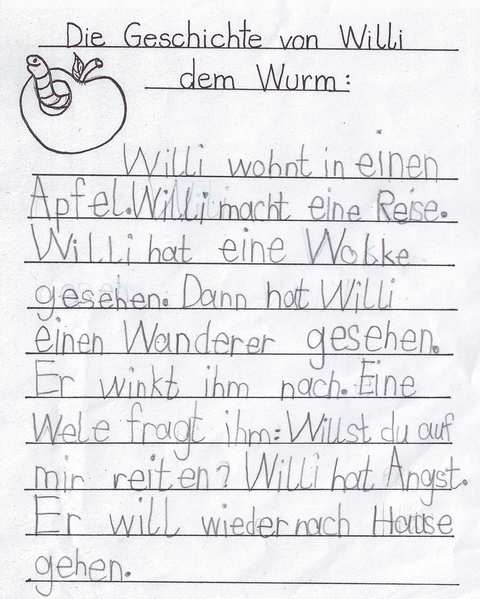 Die Geschichte von Willi
dem Wurm:
Willi wohnt in einen
Apfel. Willi macht eine Reise.
Willi hat eine Wokke
gesehen. Dann hat Willi
einen Wanderer gesehen.
Er winkt ihm nach. Eine
Wele fragt ihm: Willst du auf
mir reiten? Willi hat Angst.
Er will wieder nach Hause
gehen.